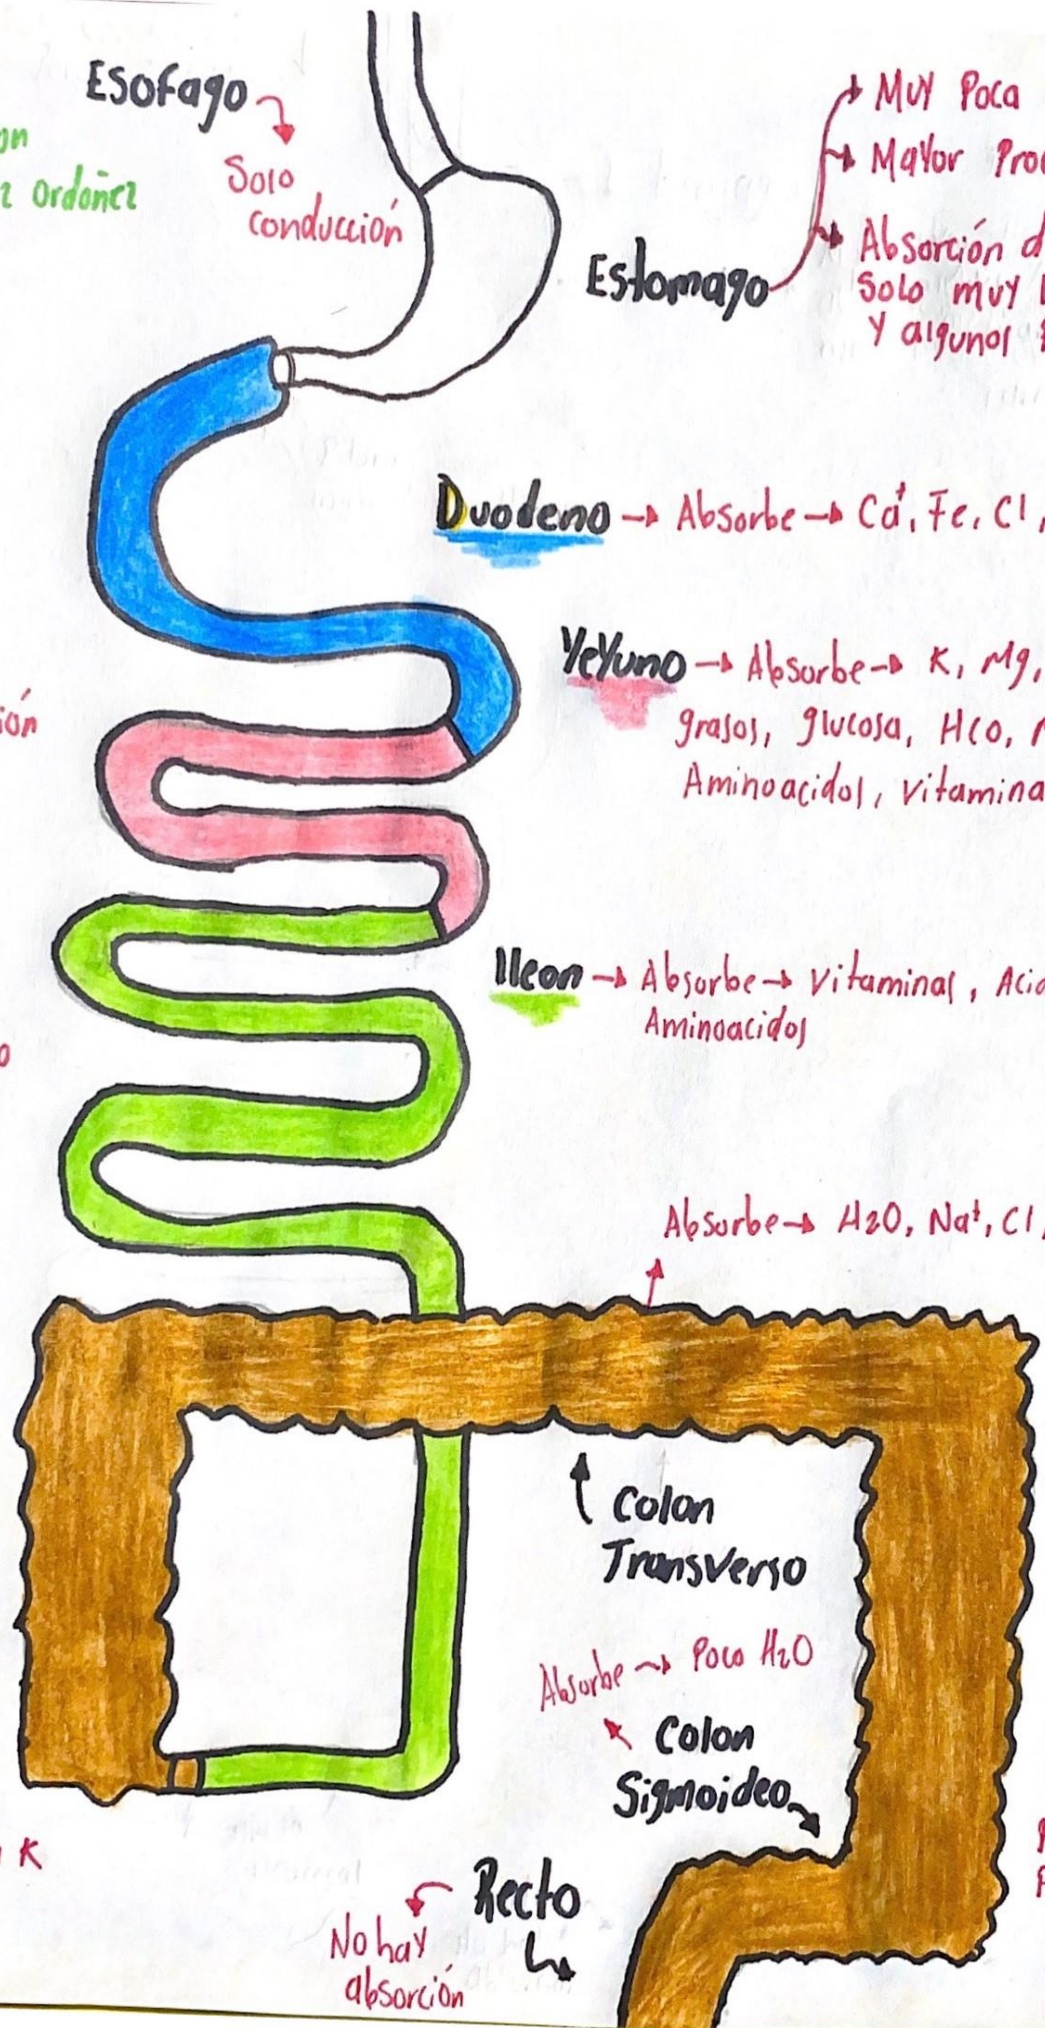 Esofago
Solo
conducción
Ordoñez
Muy Poca
Mayor
Absorción
Estomago
Solo muy
y algunos
Duodeno → Absorbe → Ca⁺, Fe, Cl,
YeYuno → Absorbe → K, Mg,
grasos, glucosa, HCO,
Aminoacidos, vitamina
Ileon → Absorbe → Vitaminas,
Aminoacidos
Absorbe → H2O, Na⁺, Cl,
Colon
Transverso
Absorbe → Poco H2O
Colon
Sigmoideo
K
Recto
No hay
absorción